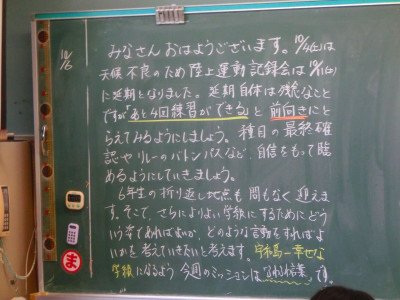 10/6
みなさん おはようございます。10/4(土)は
天候不良のため陸上運動記録会は10/11(土)
に延期となりました。延期自体は残念なこと
ですが「あと4回練習ができる」と前向きにと
らえてみるようにしましょう。種目の最終確
認やリレーのバトンパスなど、自信をもって臨
めるようにしていきましょう。
6年生の折り返し地点も間もなく迎えま
す。そこで、さらによりよい学級にするためにどう
いう姿であればよいか、どのような言動をすればよ
いかを考えていきたいと考えます。宇和島一幸せな
学級になるよう今週のミッションは、です。
ま